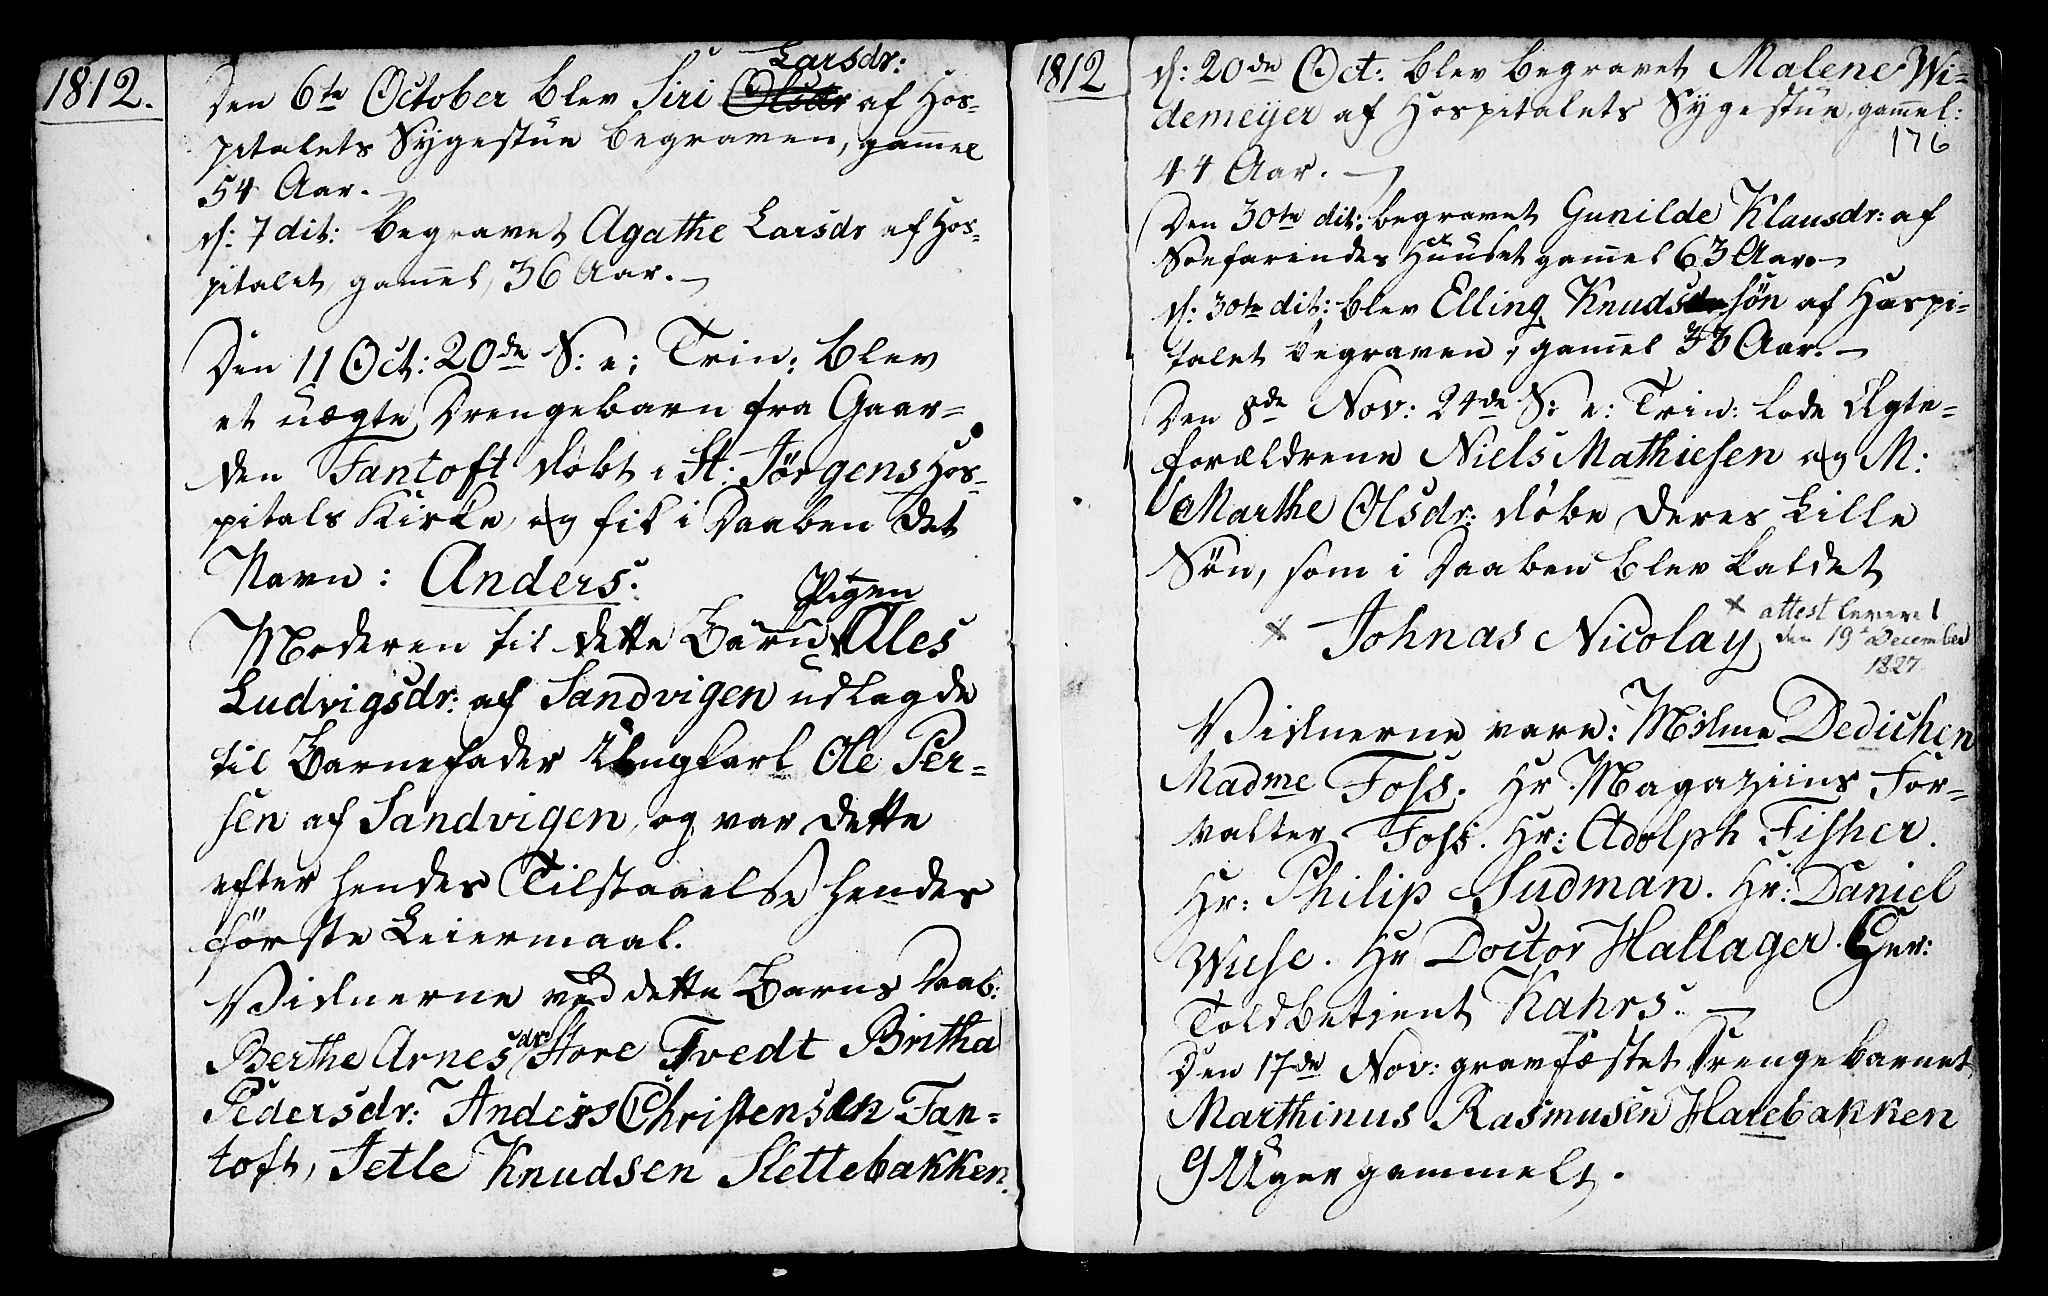 1812.
Larsdr:
Den 6te October blev Siri Olsdr af Hos-
pitalets Sygestue begraven, gam̅el
54 Aar.
d: 7 dit: begravet Agathe Larsdr af Hos-
pitalet, gam̅el, 36 Aar.
Den 11 Oct: 20de S: e: Trin: blev
et uægte Drengebarn fra Gaar-
den Fantoft døbt i St: Jörgens Hos-
pitals Kirke, og fik i Daaben det
Navn: Anders.
Pigen
Moderen til dette Barn Ales
Ludvigsdr: af Sandvigen udlagde
til Barnefader Ungkarl Ole Per-
sen af Sandvigen, og var dette
efter hendes Tilstaaelse hendes
förste Leiermaal.
Vidnerne ved dette Barns Daab:
Berthe Arnesdr Store Tvedt Britha
Pedersdr: Anders Christensen Fan-
toft, Jetle Knudsen Slettebakken.
1812
d: 20de Oct: blev begravet Malene Wi-
demeijer af Hospitalets Sygestue, gam̅el:
176
44 Aar.
Den 30te dit: begravet Gunilde Klausdr: af
Søefarendes Huuset gam̅el 63 Aar.
d: 30te dit: blev Elling Knudssøn af Hospi-
talet begraven, gam̅el 33 Aar.
Den 8de Nov: 24de S: e: Trin: lode Ægte-
forældrene Niels Mathiesen og M:
Marthe Olsdr: døbe deres lille
Søn, som i Daaben blev kaldet
× Johnas Nicolay
× attest leveret
den 19de December
1827
Vidnerne vare: Mdme Dedichen
Madme Foss. Hr Magaziins For-
valter Foss. Hr: Adolph Fisher.
Hr: Philip Sudman. Hr: Daniel
Wiese. Hr Doctor Hallager. Hver:
Toldbetient Kahrs.
Den 17de Nov: gravfæstet Drengebarnet
Marthinus Rasmusen Harebakken
9 Uger gammelt.